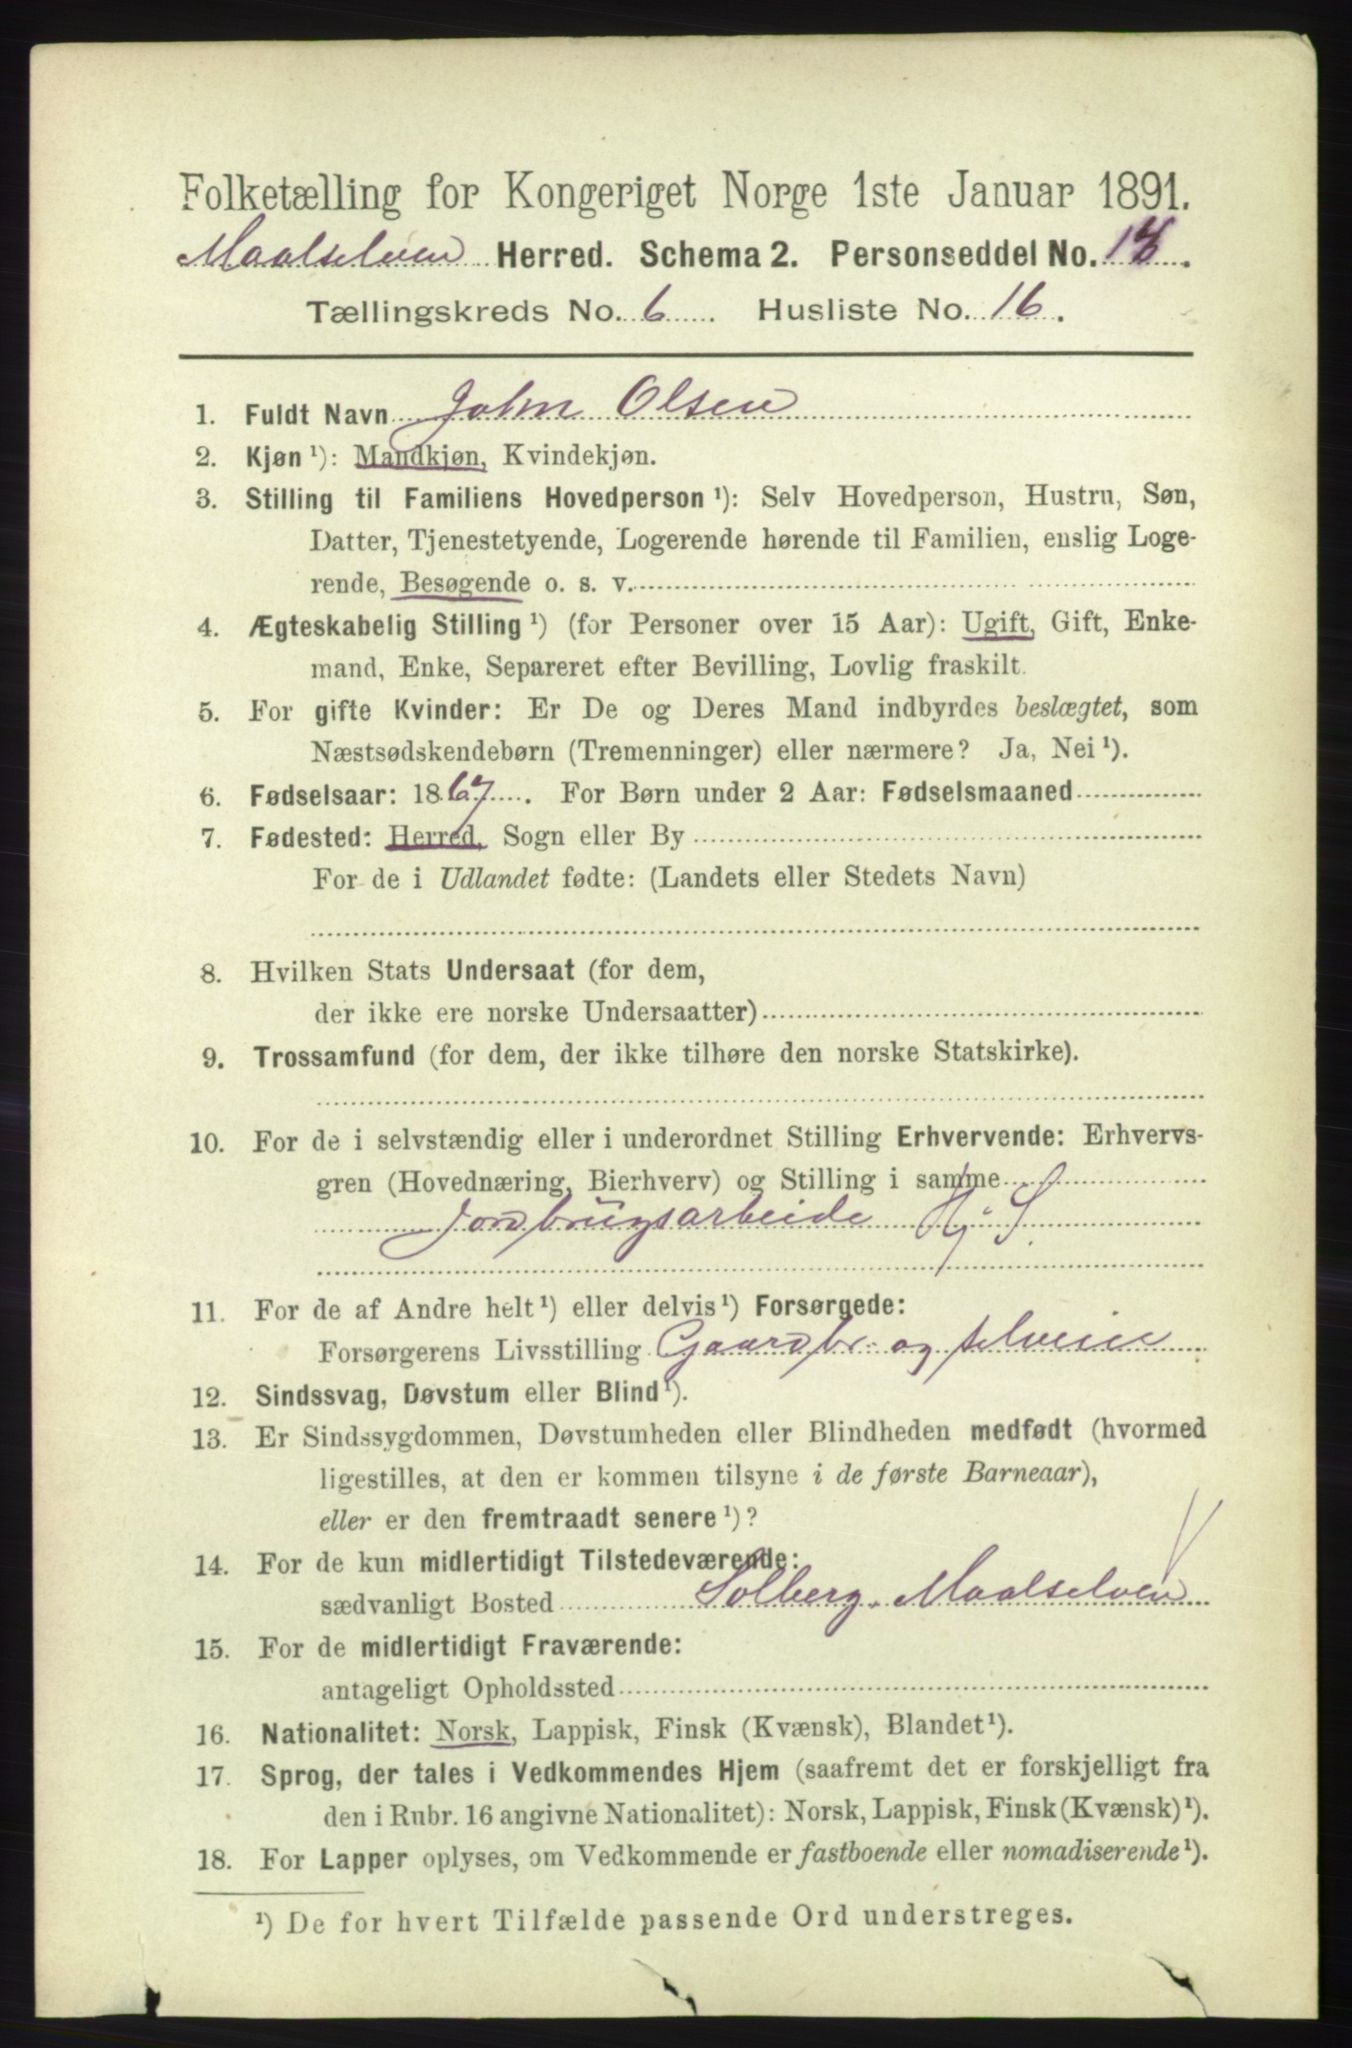 Folketælling for Kongeriget Norge 1ste Januar 1891.
Maalselven Herred. Schema 2. Personseddel No.
Tællingskreds No. 6 Husliste No. 16.
1. Fuldt Navn John Olsen
2. Kjøn ¹): Mandkjøn, Kvindekjøn.
3. Stilling til Familiens Hovedperson ¹): Selv Hovedperson, Hustru, Søn,
Datter, Tjenestetyende, Logerende hørende til Familien, enslig Loge-
rende, Besøgende o. s. v.
4. Ægteskabelig Stilling ¹) (for Personer over 15 Aar): Ugift, Gift, Enke-
mand, Enke, Separeret efter Bevilling, Lovlig fraskilt.
5. For gifte Kvinder: Er De og Deres Mand indbyrdes beslægtet, som
Næstsødskendebørn (Tremenninger) eller nærmere? Ja, Nei ¹).
6. Fødselsaar: 1867. For Børn under 2 Aar: Fødselsmaaned
7. Fødested: Herred, Sogn eller By
For de i Udlandet fødte: (Landets eller Stedets Navn)
8. Hvilken Stats Undersaat (for dem,
der ikke ere norske Undersaatter)
9. Trossamfund (for dem, der ikke tilhøre den norske Statskirke).
10. For de i selvstændig eller i underordnet Stilling Erhvervende: Erhvervs-
gren (Hovednæring, Bierhverv) og Stilling i samme
Jordbrugsarbeide Hj. S
11. For de af Andre helt ¹) eller delvis ¹) Forsørgede:
Forsørgerens Livsstilling Gaardbr. og selveier
12. Sindssvag, Døvstum eller Blind ¹).
13. Er Sindssygdommen, Døvstumheden eller Blindheden medfødt (hvormed
ligestilles, at den er kommen tilsyne i de første Barneaar),
eller er den fremtraadt senere ¹)?
14. For de kun midlertidigt Tilstedeværende:
sædvanligt Bosted Solberg. Maalselven
15. For de midlertidigt Fraværende:
antageligt Opholdssted
16. Nationalitet: Norsk, Lappisk, Finsk (Kvænsk), Blandet ¹).
17. Sprog, der tales i Vedkommendes Hjem (saafremt det er forskjelligt fra
den i Rubr. 16 angivne Nationalitet): Norsk, Lappisk, Finsk (Kvænsk) ¹).
18. For Lapper oplyses, om Vedkommende er fastboende eller nomadiserende ¹).
¹) De for hvert Tilfælde passende Ord understreges.